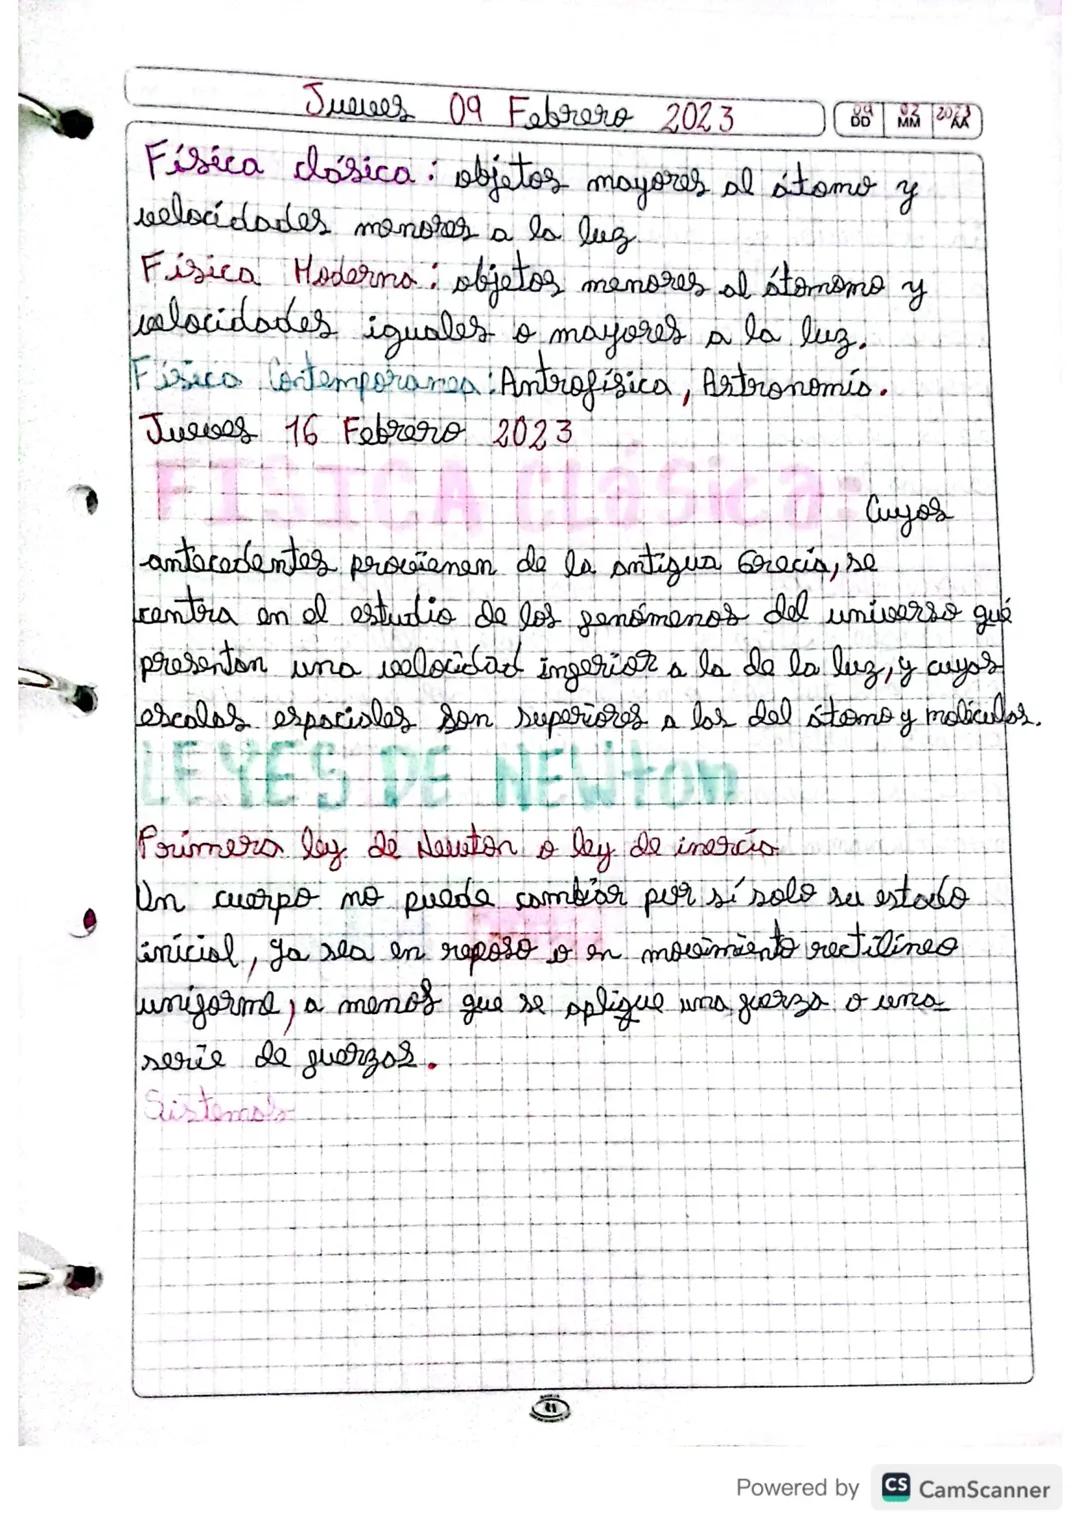 Jueves 09 Febrero 2023
09 DD 02 MM 2023 AA
Física clásica: objetos mayores al átomo y
velocidades menores a la luz
Física Moderna: objetos menores al átomomo y
velocidades iguales o mayores a la luz.
Física Contemporanea: Antrofísica, Astronomía.
Jueves 16 Febrero 2023
FISICA Clásica: Cuyos
antecedentes provienen de la antigua Grecia, se
centra en el estudio de los fenómenos del universo qué
presentan una velocidad inferior a la de la luz, y cuyas
escalas espaciales son superiores a las del átomo y moléculas.
LEYES DE NEWton
Primera ley de Newton o ley de inercia
Un cuerpo no puede cambiar por sí solo su estado
inicial, ya sea en reposo o en movimiento rectilíneo
uniforme, a menos que se aplique una fuerza o una
serie de fuerzas.
Sistemas
Powered by CS CamScanner